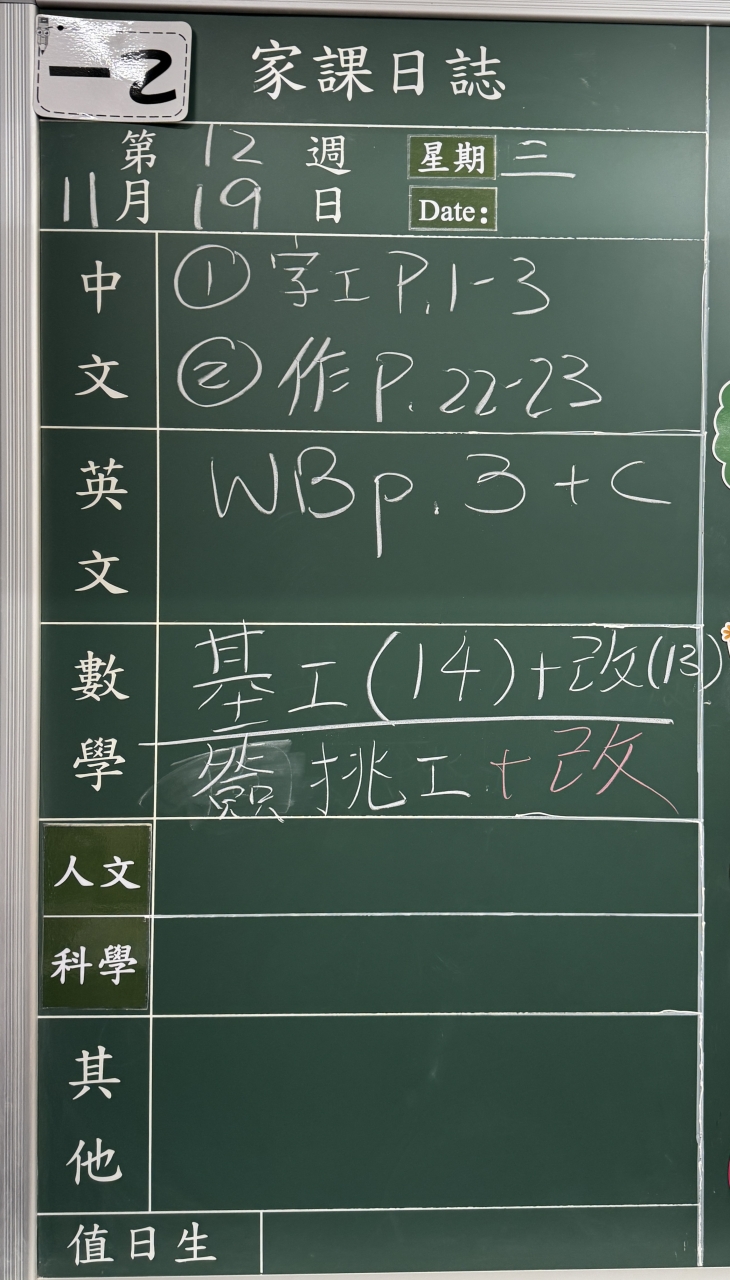 一2
家課日誌
第 12 週 星期 三
11月 19 日 Date:
中文
① 字工 P.1-3
② 作 P.22-23
英文
WB p.3 + C
數學
基工(14)+改(13)
簽 挑工+改
人文
科學
其他
值日生